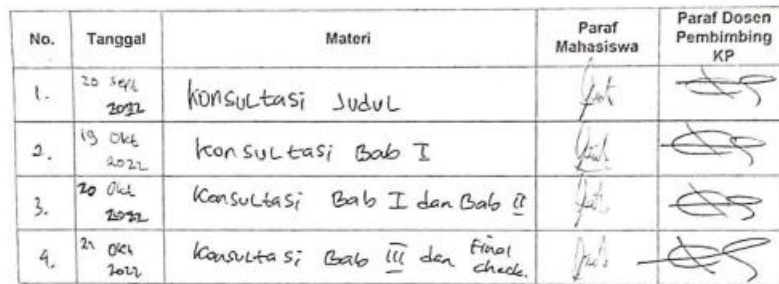 No. Tanggal Materi Paraf Mahasiswa Paraf Dosen Pembimbing KP
1. 20 Sept 2022 Konsultasi Judul
2. 19 Okt 2022 Konsultasi Bab I
3. 20 Okt 2022 Konsultasi Bab I dan Bab II
4. 21 Okt 2022 Konsultasi Bab III dan Final check.